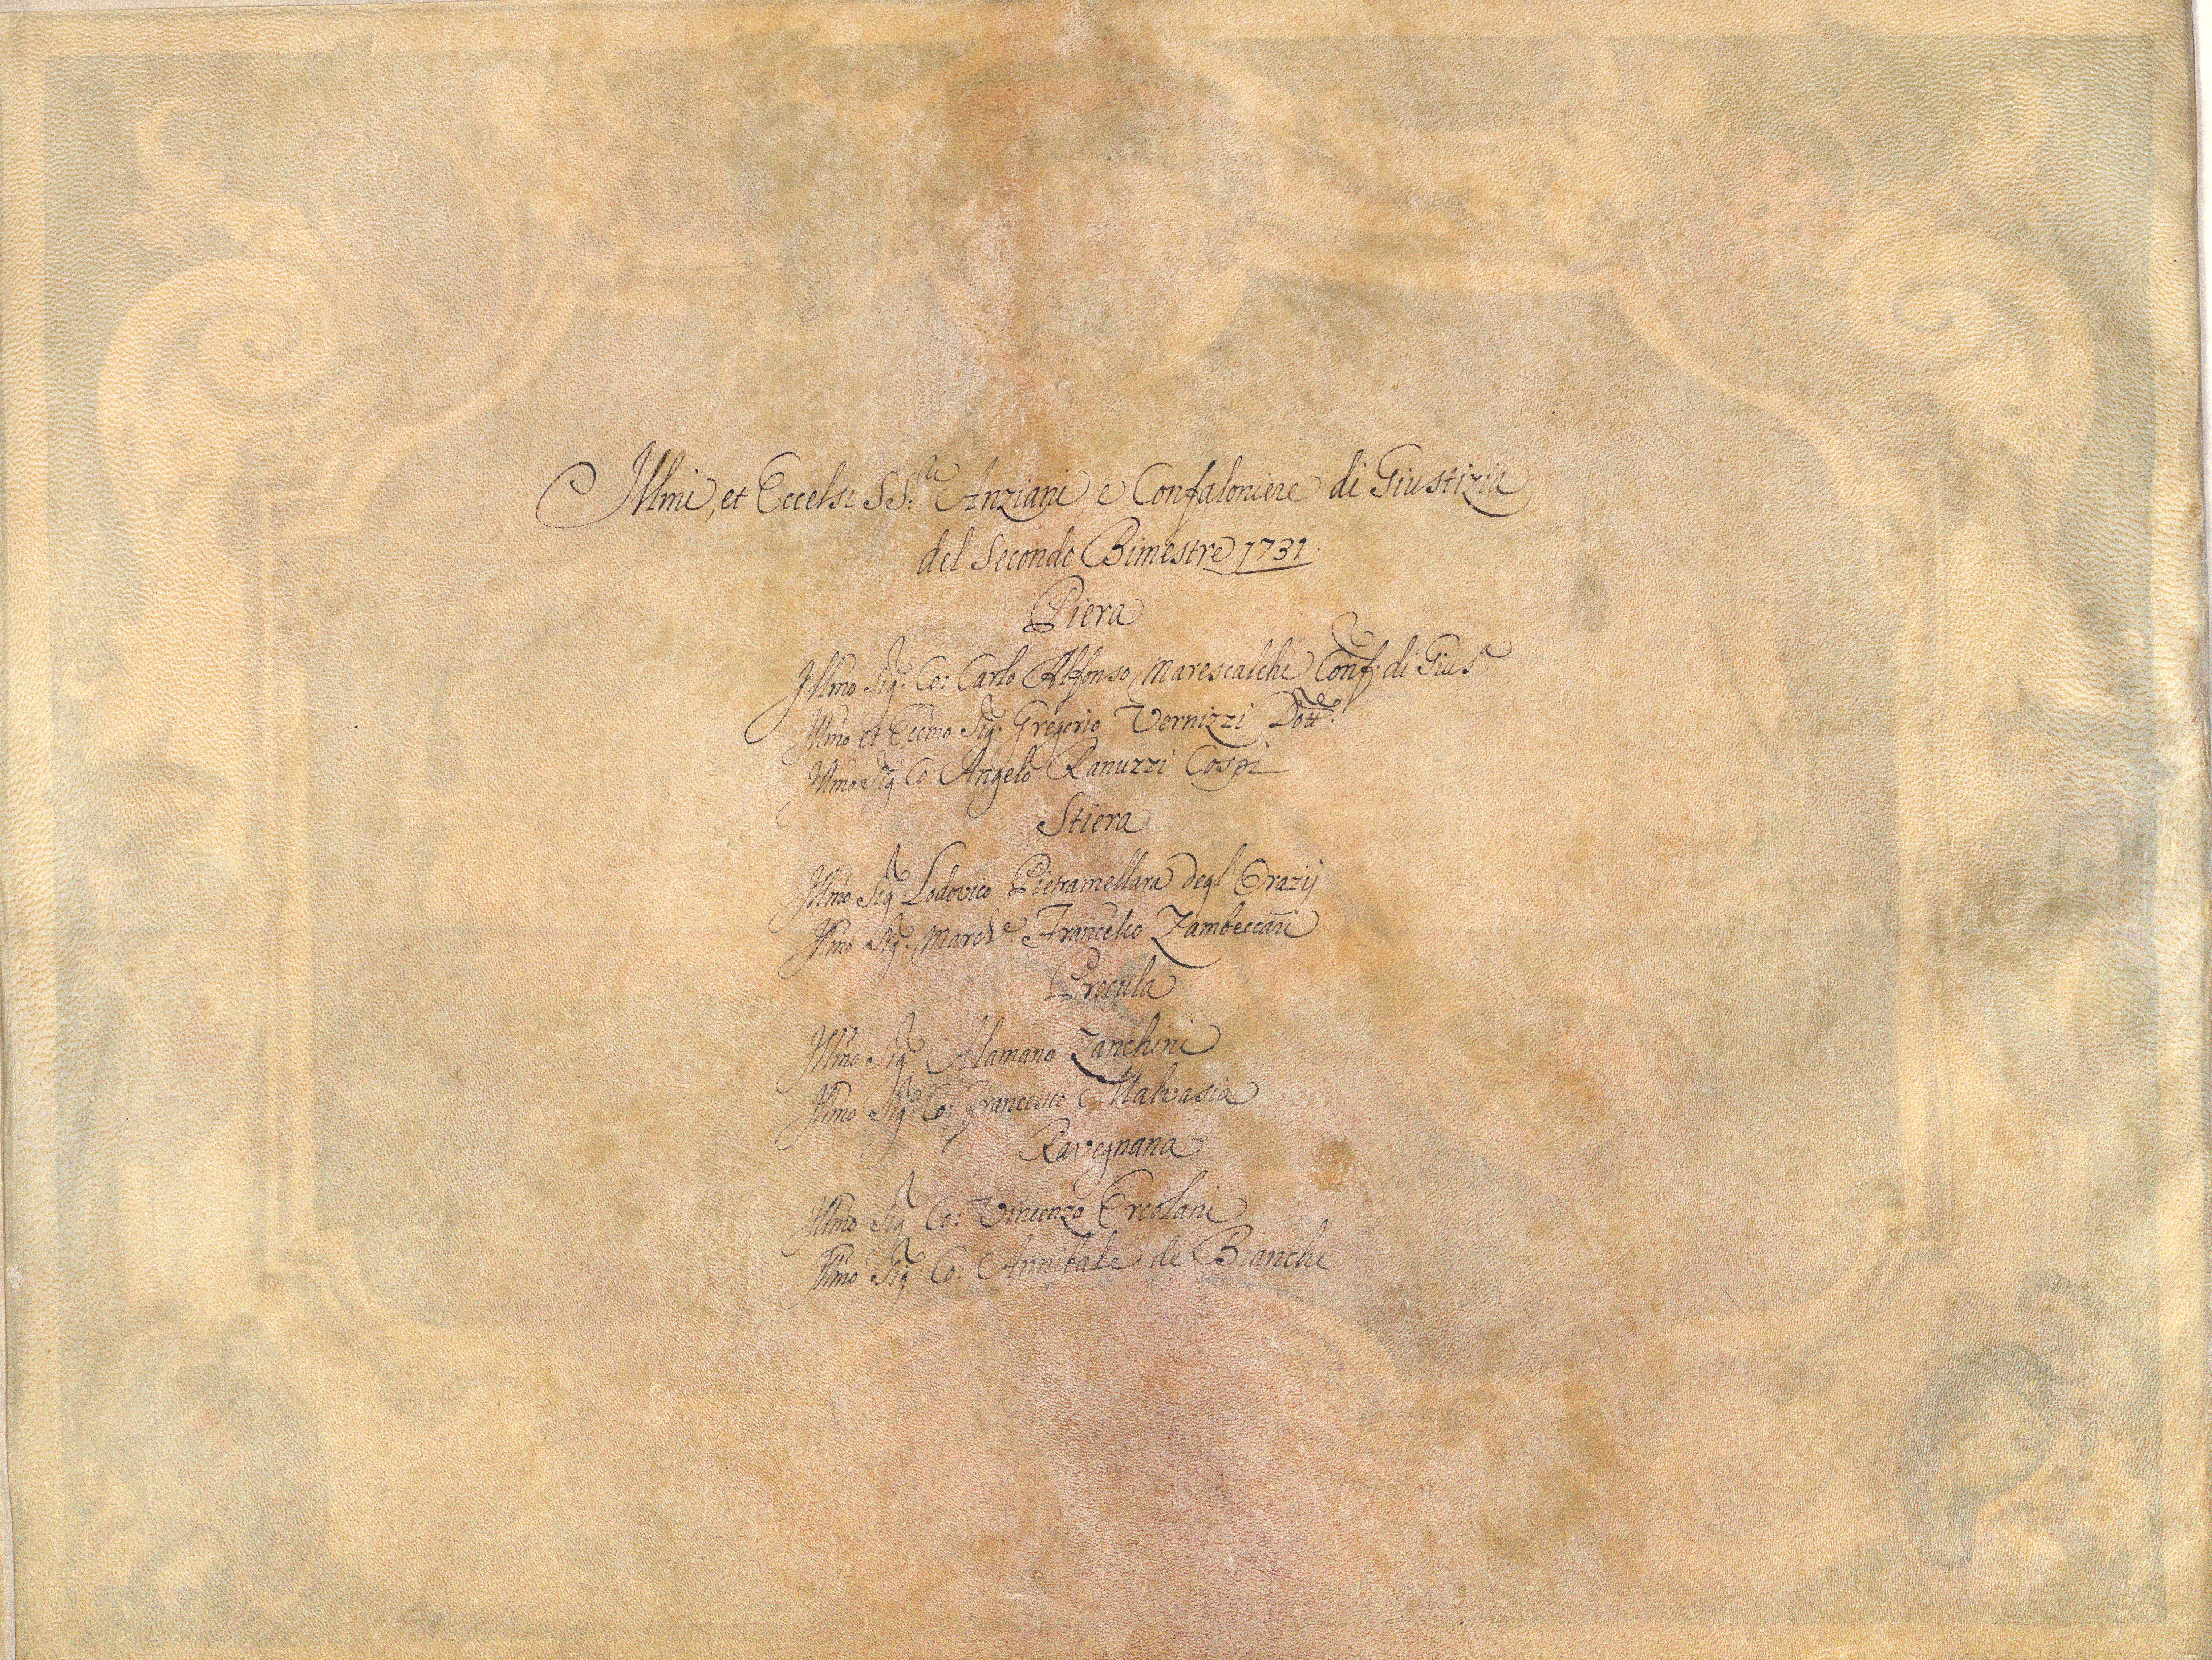 Illmi, et Eccelsi SS.ri Anziani, e Confaloniere di Giustizia
del Secondo Bimestre 1731.
Piera
Illmo Sig.r Co: Carlo Alfonso Marescalchi Conf. di Gius.a
Illmo et Eccmo Sig.r Gregorio Vernizzi Dott.re
Illmo Sig.r Co: Angelo Ranuzzi Cospi
Stiera
Illmo Sig.r Lodovico Pietramellara degl' Orazij
Illmo Sig.r March.e Francesco Zambeccari
Procula
Illmo Sig.r Alamano Zanchini
Illmo Sig.r Co: Francesco Malvasia
Ravegnana
Illmo Sig.r Co: Vincenzo Ercolani
Illmo Sig.r Co: Annibale de Bianchi